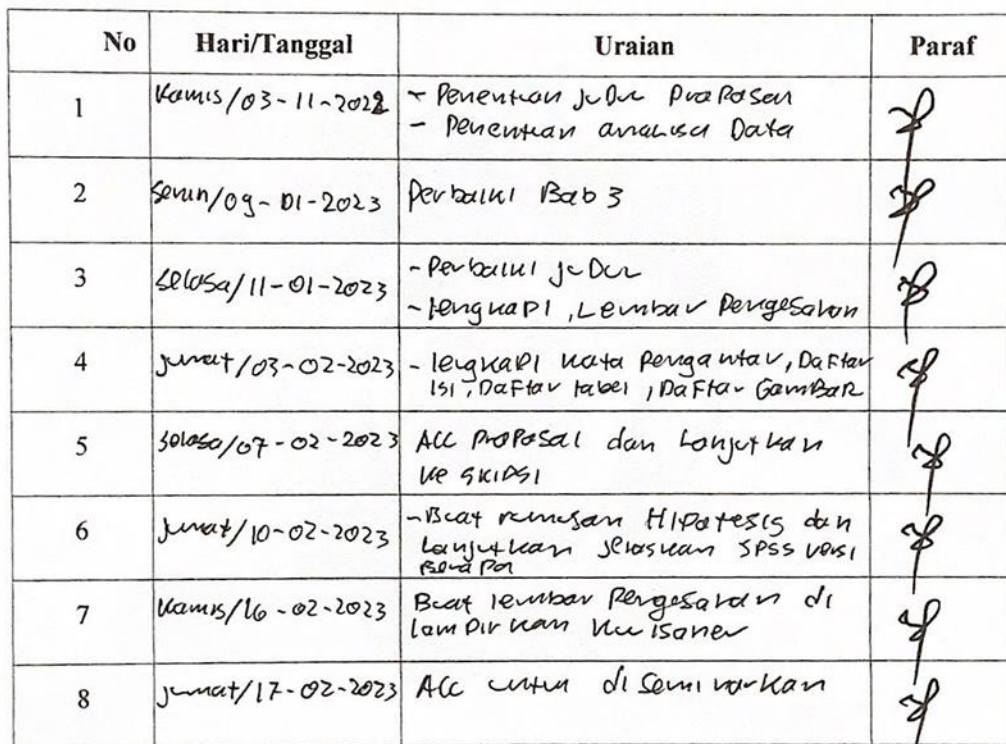 No Hari/Tanggal Uraian Paraf
1 Kamis/03-11-2022 - Penentuan judul Proposal
- Penentuan analisa Data
2 Senin/09-01-2023 Perbaiki Bab 3
3 Selasa/11-01-2023 - Perbaiki judul
- lengkapi, Lembar Pengesahan
4 jumat/03-02-2023 - lengkapi kata Pengantar, Daftar
isi, Daftar tabel, Daftar Gambar
5 Selasa/07-02-2023 ACC Proposal dan Lanjutkan
ke skripsi
6 jumat/10-02-2023 - Buat rumusan Hipotesis dan
Lanjutkan jelaskan SPSS versi
Berapa
7 Kamis/16-02-2023 Buat lembar Pengesahan di
lampirkan kuisoner
8 jumat/17-02-2023 ACC untuk di Seminarkan